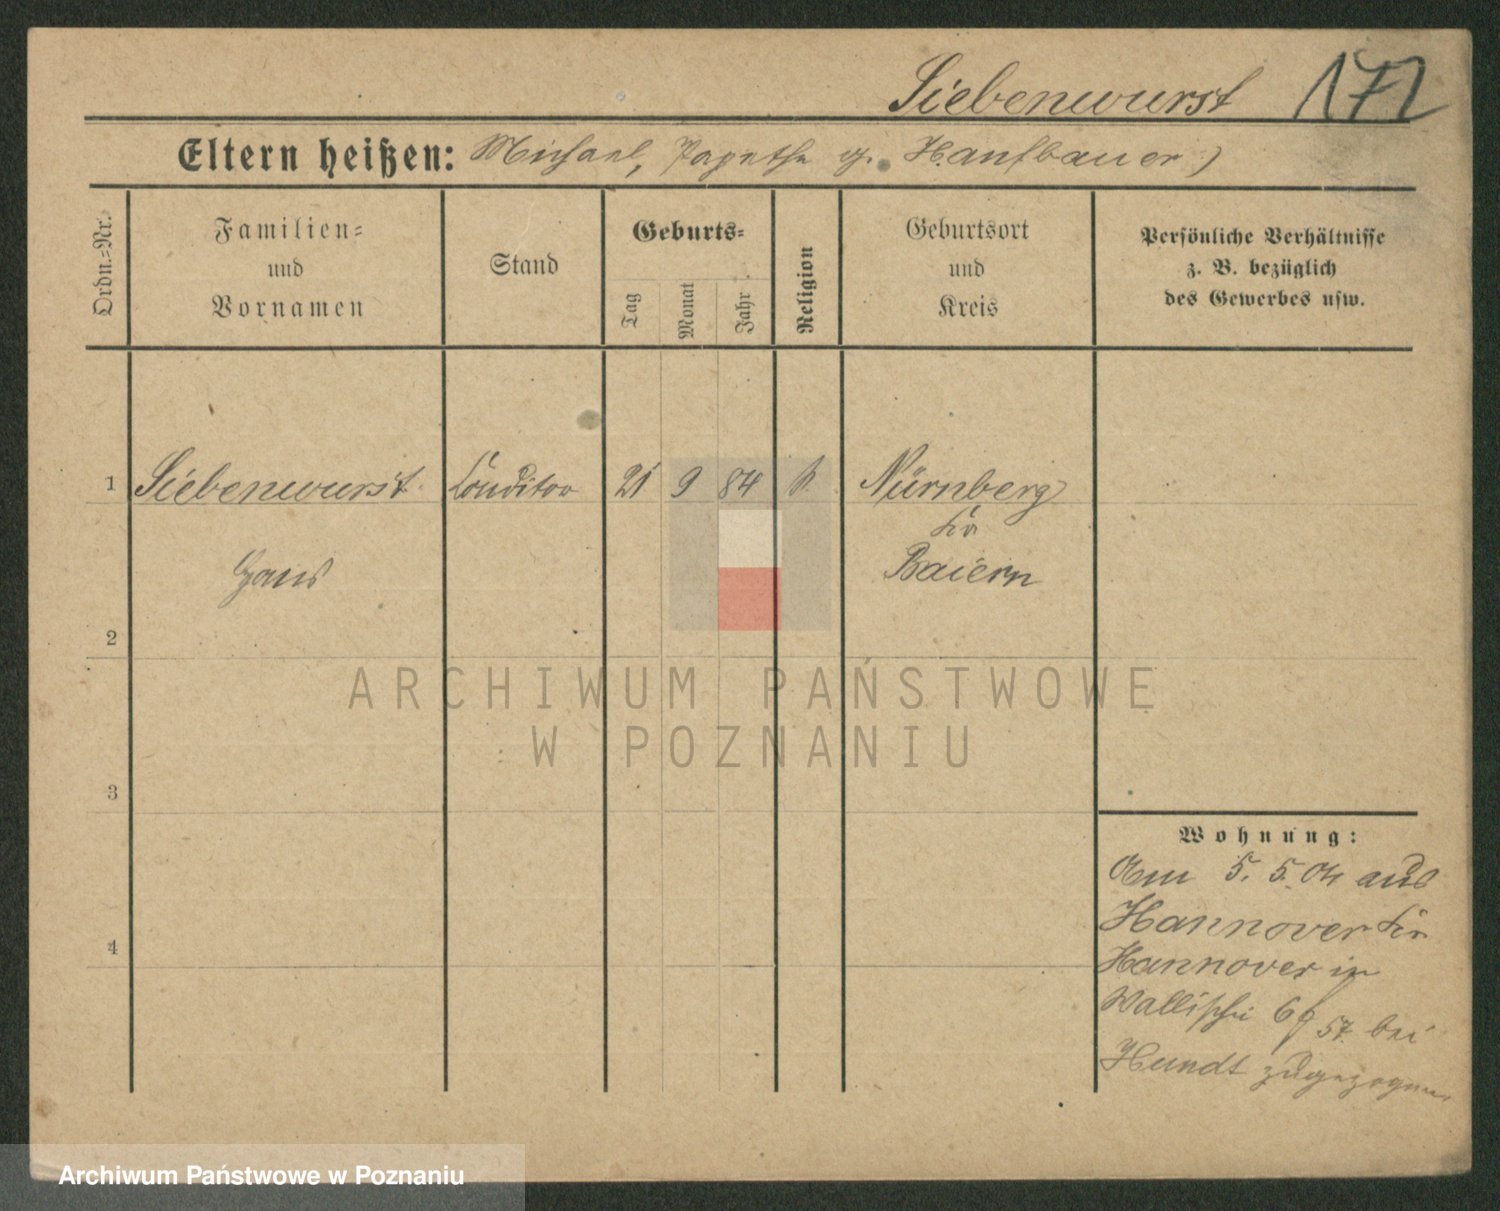 Siebenwurst 172
Eltern heißen: Michael, g. Hanfbauer)
Ordn.-Nr.
Familien-
und
Vornamen
Stand
Geburts-
Tag
Monat
Jahr
Religion
Geburtsort
und
Kreis
Persönliche Verhältnisse
z. B. bezüglich
des Gewerbes usw.
1 Siebenwurst Conditor 21 9 84 k. Nürnberg
Kr
Baiern
Hans
2
3
4
Wohnung:
Am 5. 5. 04 aus
Hannover Kr
Hannover in
Wallischei 57 bei
Hundt zugezogen
ARCHIWUM PAŃSTWOWE
W POZNANIU
Archiwum Państwowe w Poznaniu